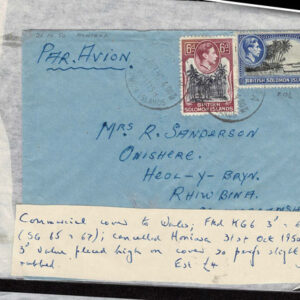 PAR AVION
6D 6D
BRITISH
SOLOMON ISLANDS
BRITISH SOLOMON ISLANDS
MRS R. SANDERSON
ONISHERE.
HEOL-Y-BRYN.
RHIWBINA.
Commercial cover to Wales; Fkd KG6 3'
(SG 65 67); cancelled Honiara 31st Oct 195
3' value placed high on cover so perfs slight
rubbed. Est £4